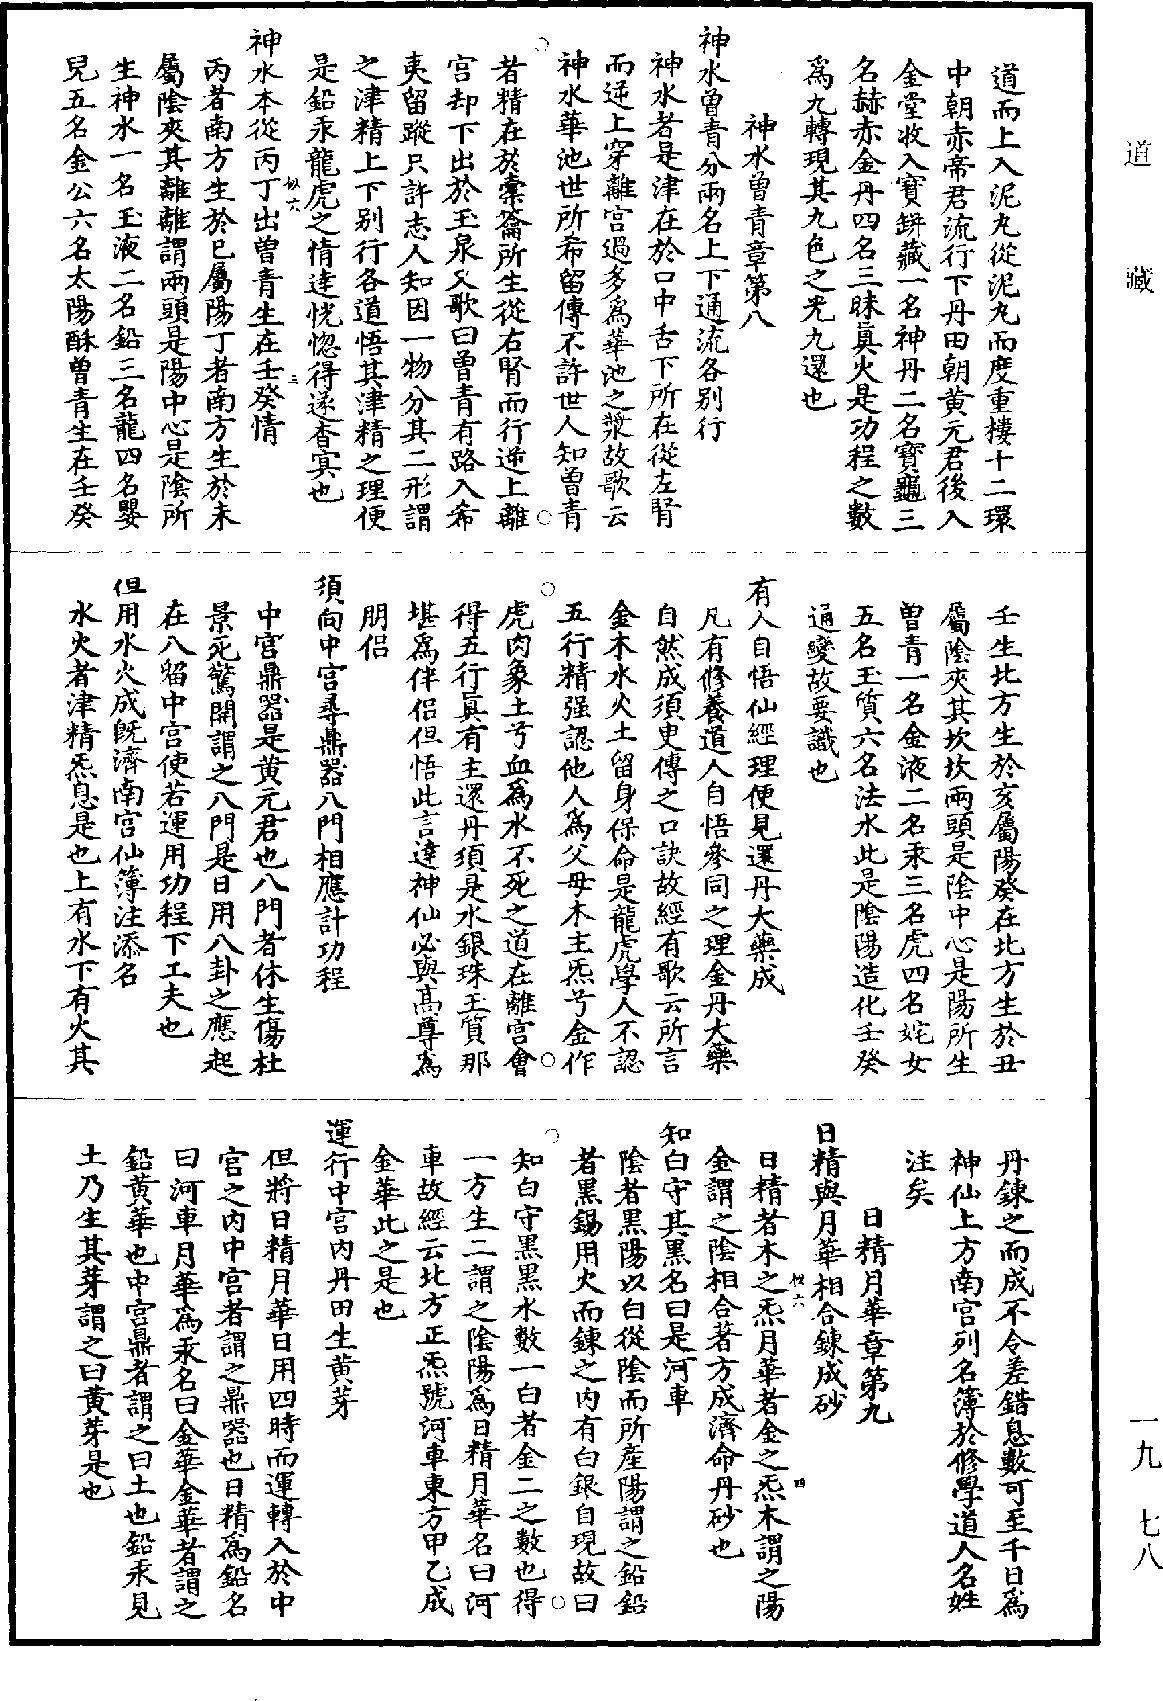 道藏
一九 七八
道而上入泥丸從泥丸而度重樓十二環
中朝赤帝君流行下丹田朝黄元君後入
金堂收入寶缾藏一名神丹二名寶龜三
名赫赤金丹四名三昧眞火是功程之數
爲九轉現其九色之光九還也
神水曾青章第八
神水曾青分兩名上下通流各別行
神水者是津在於口中舌下所在從左腎
而逆上穿離宫過多爲華池之漿故歌云
神水華池世所希留傳不許世人知曾青
者精在於橐籥所生從右腎而行逆上離
宫却下出於玉泉又歌曰曾青有路入希
夷留蹤只許志人知因一物分其二形謂
之津精上下別行各道悟其津精之理便
是鉛汞龍虎之情達恍惚得遂杳冥也
神水本從丙丁出曾青生在壬癸情
丙者南方生於巳屬陽丁者南方生於未
屬陰夾其離離謂兩頭是陽中心是陰所
生神水一名玉液二名鉛三名龍四名嬰
兒五名金公六名太陽酥曾青生在壬癸
壬生北方生於亥屬陽癸在北方生於丑
屬陰夾其坎坎兩頭是陰中心是陽所生
曾青一名金液二名汞三名虎四名姹女
五名玉質六名法水此是陰陽造化壬癸
通變故要識也
有人自悟仙經理便見還丹大藥成
凡有修養道人自悟參同之理金丹大藥
自然成須史傳之口訣故經有歌云所言
金木水火土留身保命是龍虎學人不認
五行精强認他人爲父母木主炁兮金作
虎肉象土兮血爲水不死之道在離宫會
得五行眞有主還丹須是水銀珠玉質那
堪爲伴侣但悟此言達神仙必與高尊爲
朋侣
須向中宫尋鼎器八門相應計功程
中宫鼎器是黄元君也八門者休生傷杜
景死驚開謂之八門是日用八卦之應起
在八留中宫使若運用功程下工夫也
但用水火成旣濟南宫仙簿注添名
水火者津精炁息是也上有水下有火其
丹鍊之而成不令差錯息數可至千日爲
神仙上方南宫列名簿於修學道人名姓
注矣
日精月華章第九
日精與月華相合鍊成砂
日精者木之炁月華者金之炁木謂之陽
金謂之陰相合著方成濟命丹砂也
知白守其黑名曰是河車
陰者黑陽以白從陰而所産陽謂之鉛鉛
者黑錫用火而鍊之内有白銀自現故曰
知白守黑黑水數一白者金二之數也得
一方生二謂之陰陽爲日精月華名曰河
車故經云北方正炁號河車東方甲乙成
金華此之是也
運行中宫内丹田生黄芽
但將日精月華日用四時而運轉入於中
宫之内中宫者謂之鼎器也日精爲鉛名
曰河車月華爲汞名曰金華金華者謂之
鉛黄華也中宫鼎者謂之曰土也鉛汞見
土乃生其芽謂之曰黄芽是也